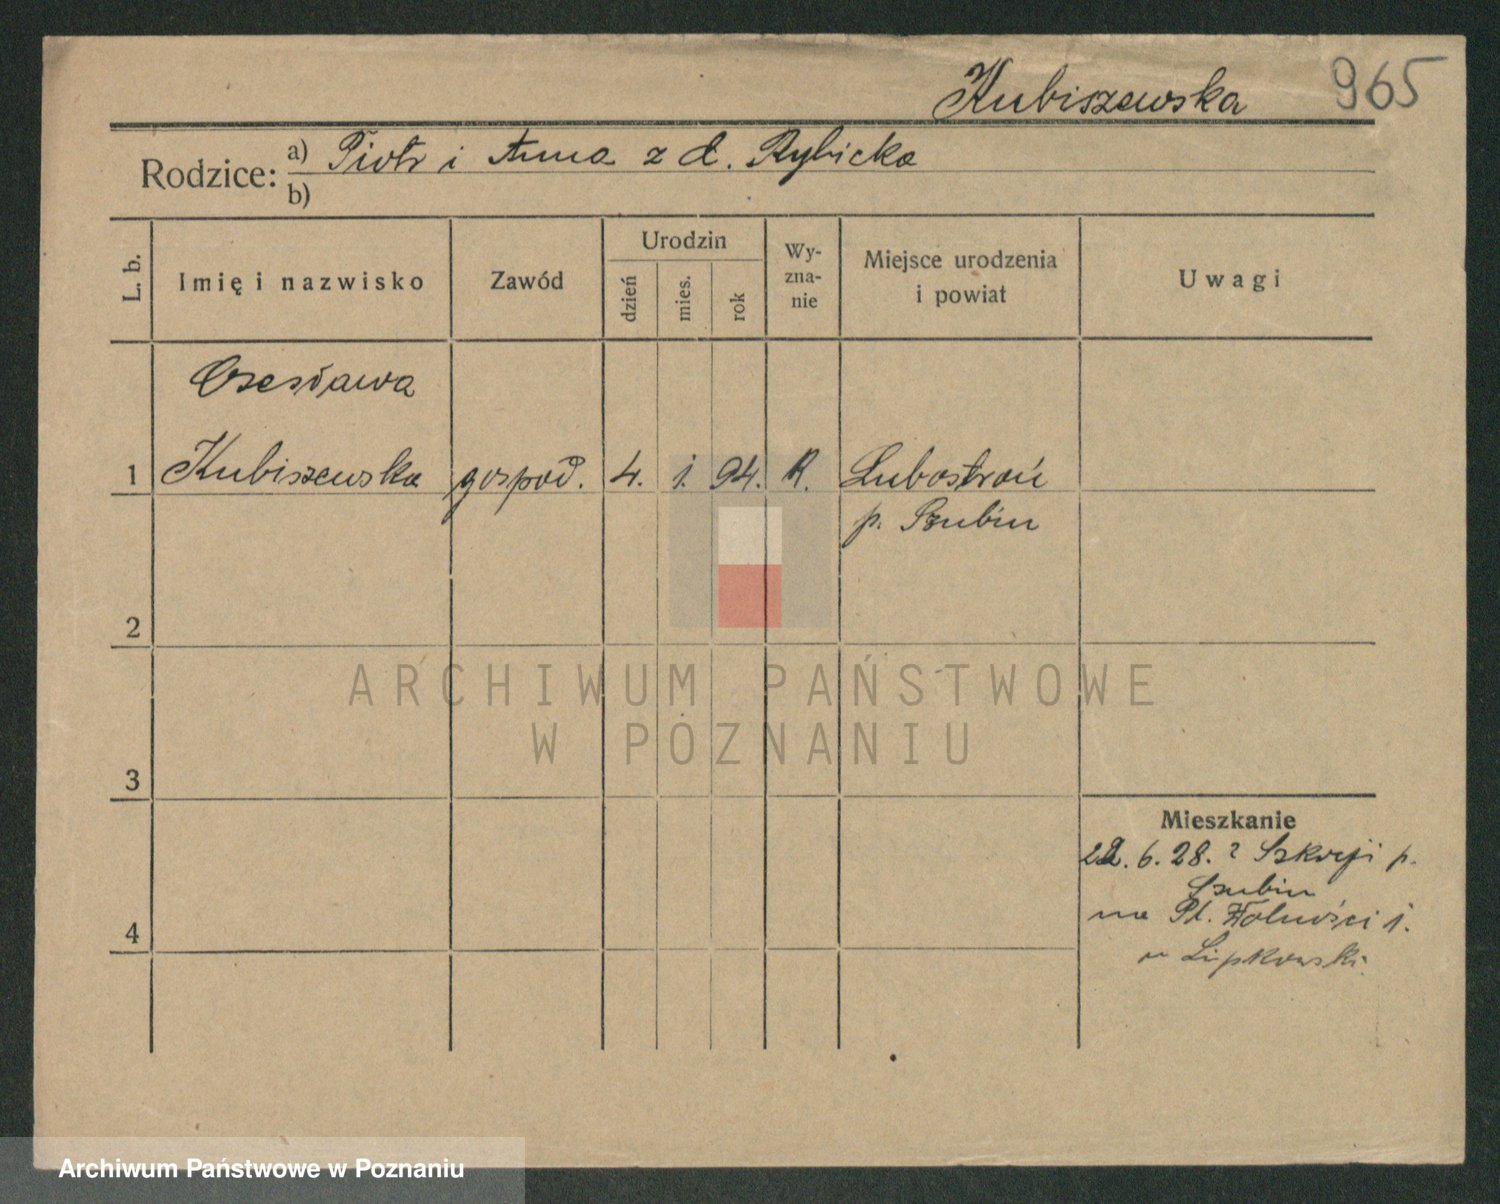 Kubiszewska 965
Rodzice: a) Piotr i Anna z d. Rybicka
b)
L. b. Imię i nazwisko Zawód Urodzin dzień mies. rok Wy-zna-nie Miejsce urodzenia i powiat Uwagi
Czesława
1 Kubiszewska gospod. 4. 1. 94. R. Lubostroń
p. Szubin
2
3
4
Mieszkanie
22. 6. 28. z Szkocji p.
Szubin
na Pl. Wolności 1.
u Lipkowski
ARCHIWUM PAŃSTWOWE
W POZNANIU
Archiwum Państwowe w Poznaniu